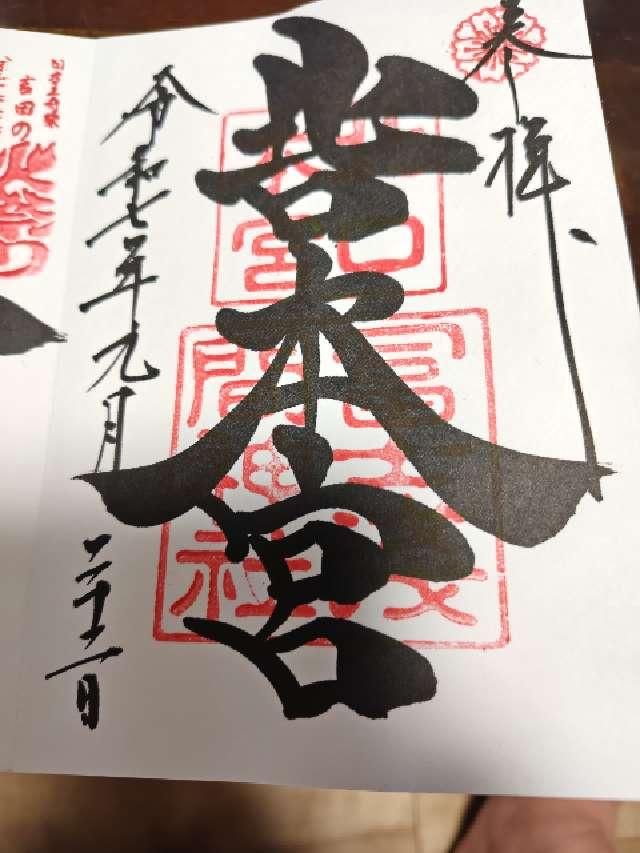 奉拝
北口本宮
令和七年元月
二十二日
北口本宮
冨士浅間神社
日本三奇祭
吉田の
火祭り